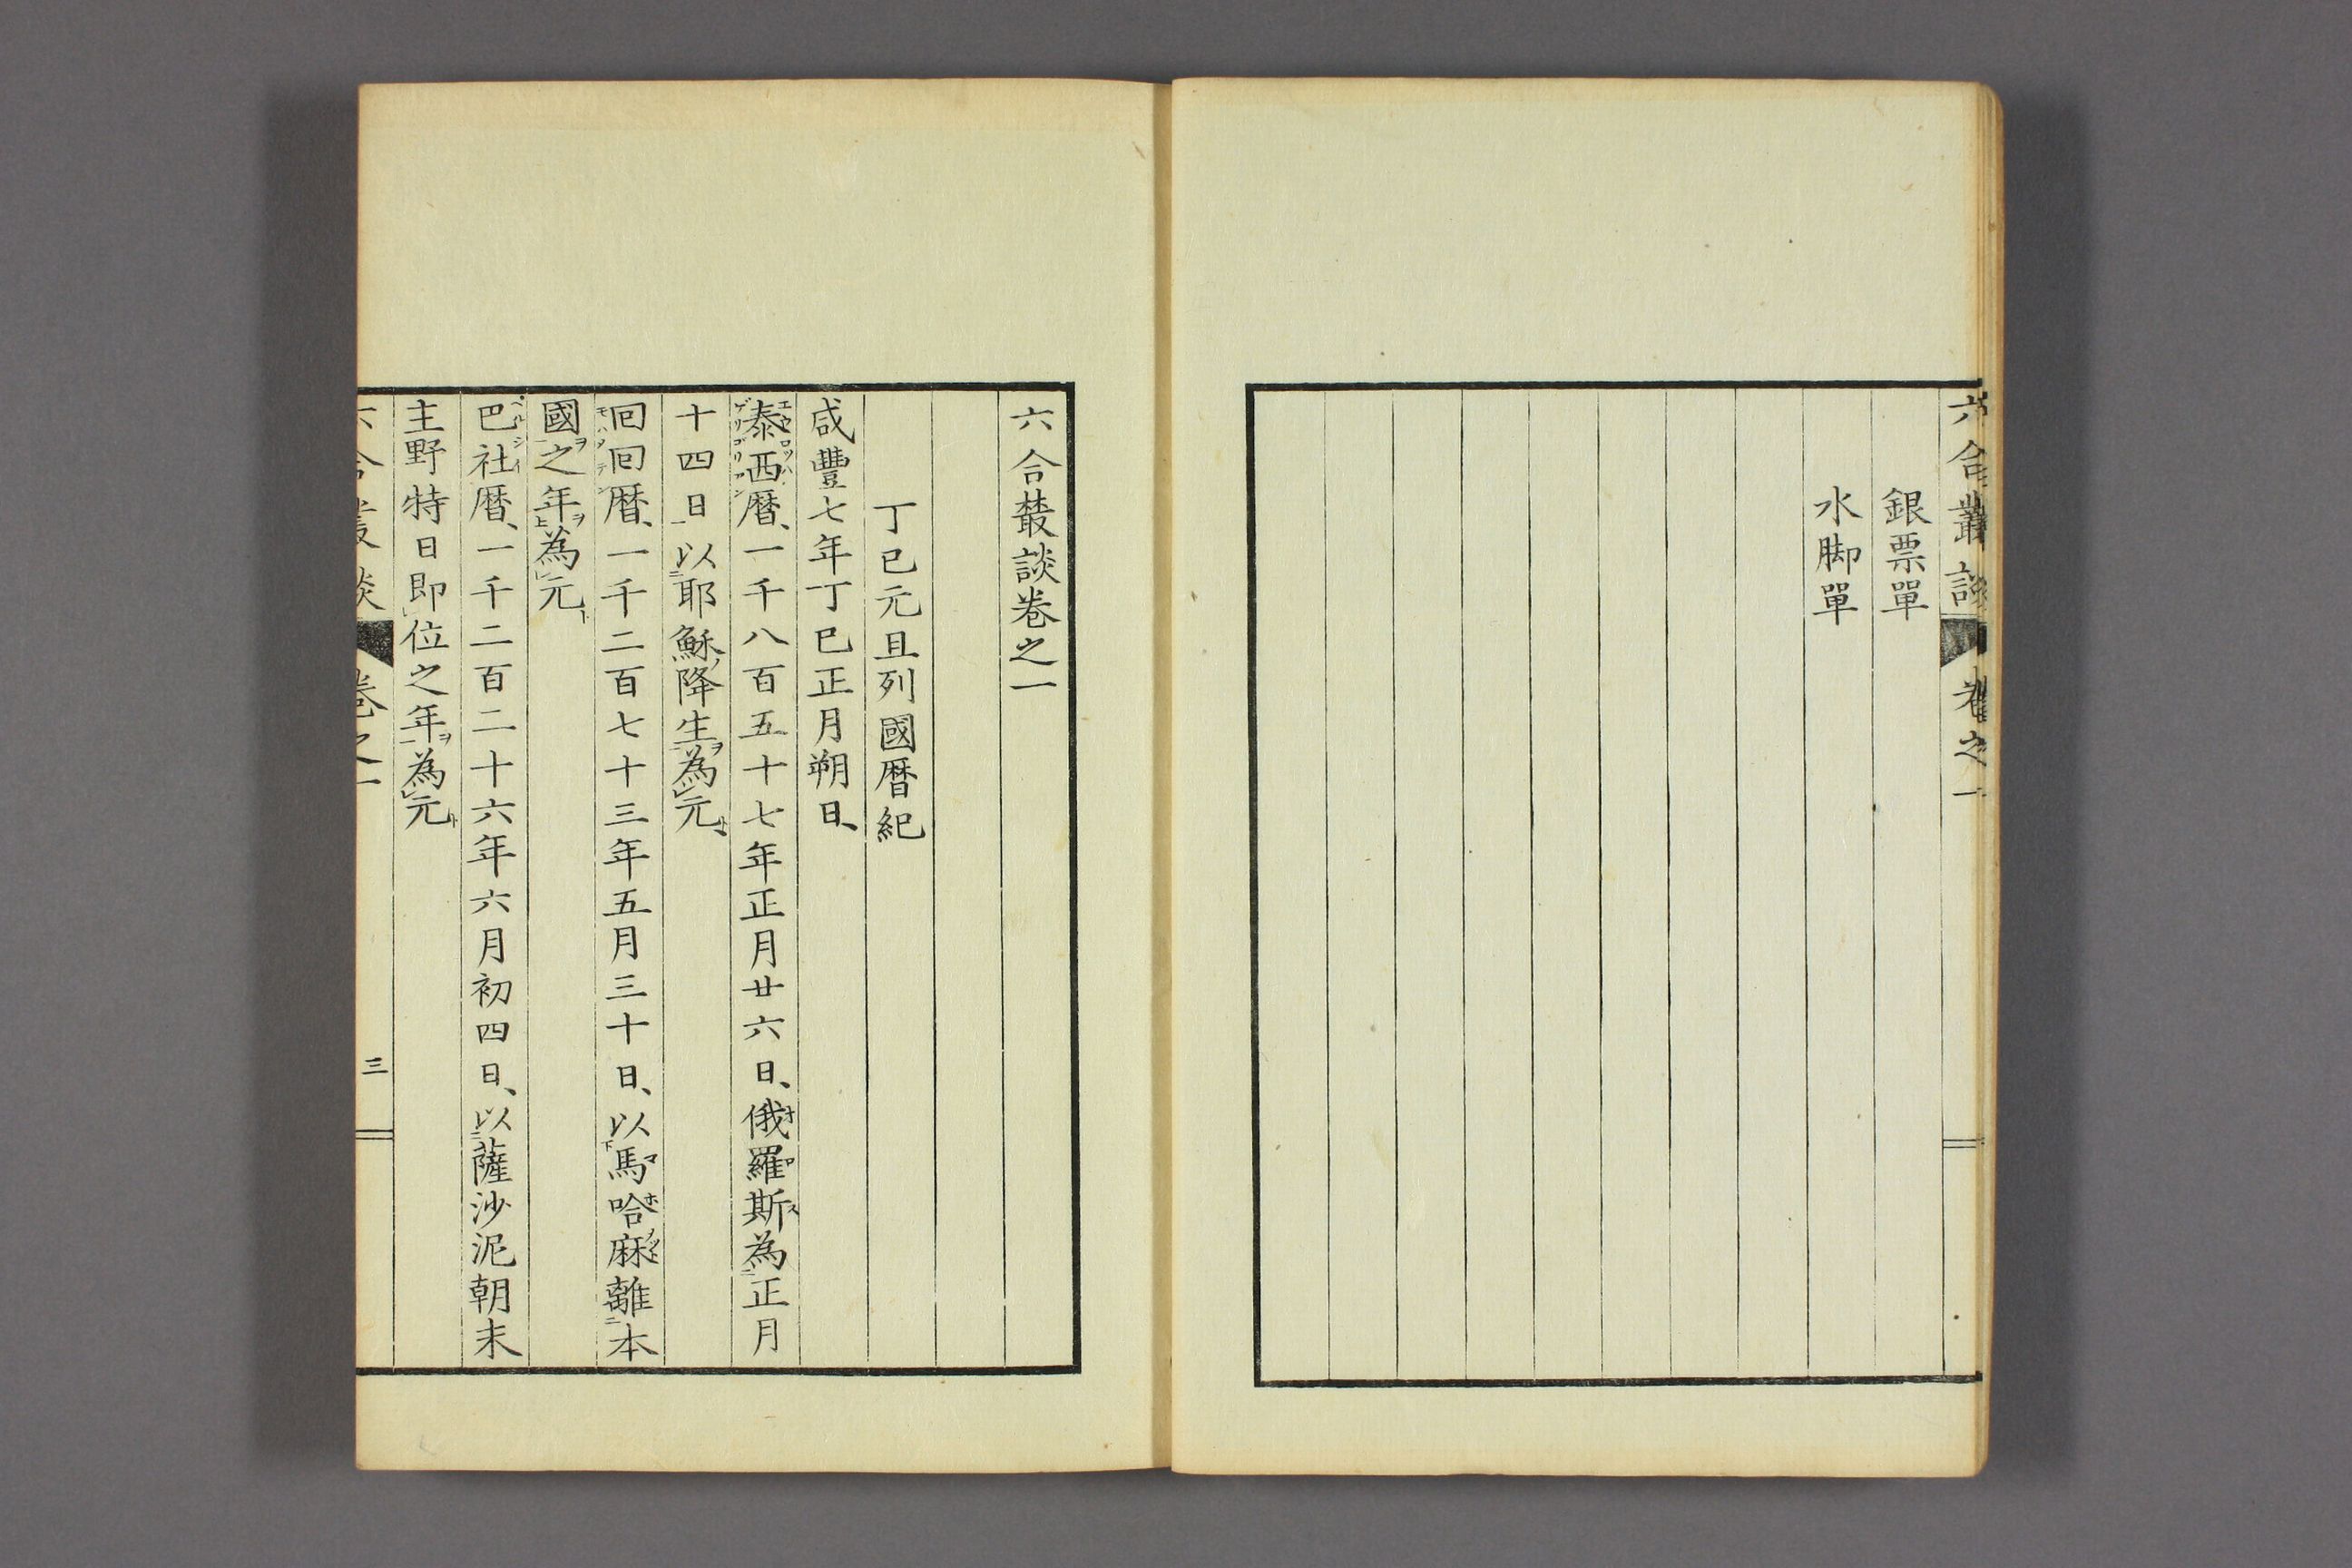 六合叢談 卷之一
銀票單
水脚單
六合䕺談卷之一
丁巳元旦列國暦紀
咸豐七年丁巳正月朔日、
泰西暦、一千八百五十七年正月廿六日、俄羅斯為正月
十四日以耶穌降生為元、
囘囘暦、一千二百七十三年五月三十日、以馬哈麻離本
國之年為元
巴社暦、一千二百二十六年六月初四日、以薩沙泥朝末
主野特日即位之年為元
六合叢談 卷之一 三